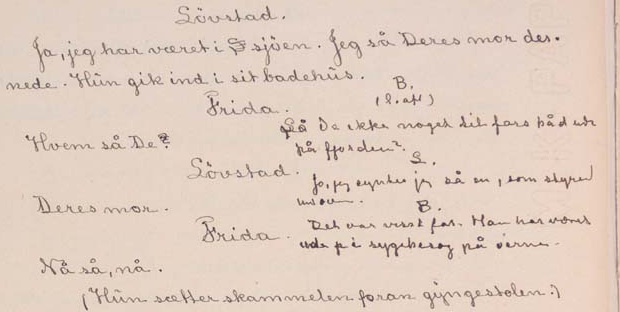 Lövstad.
Ja, jeg har været i sjöen. Jeg så Deres mor der-
nede. Hun gik ind i sit badehus.
Frida.
Hvem så De?
Lövstad.
Deres mor.
Frida.
Nå så, nå.
(Hun sætter skammelen foran gyngestolen.)
B.
Så De ikke noget til fars båd ude
på fjorden?
L.
Jo, jeg syntes jeg så en, som styred
B.
Det var visst far. Han har været
ude på i sygebesøg på øerne.